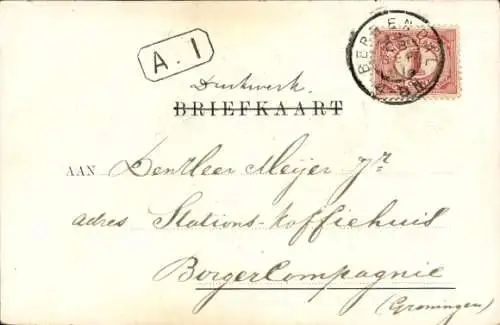 A. I
Drukwerk.
BRIEFKAART
AAN Den Heer Meijer Jr
adres Stations-Koffiehuis
BorgerCompagnie
(Groningen)